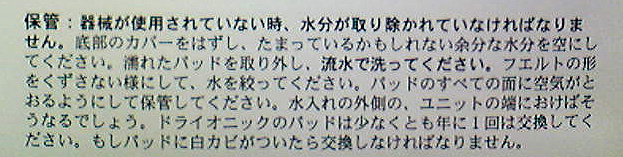 保管：器械が使用されていない時、水分が取り除かれていなければなりま
せん。底部のカバーをはずし、たまっているかもしれない余分な水分を空にし
てください。濡れたパッドを取り外し、流水で洗ってください。フエルトの形
をくずさない様にして、水を絞ってください。パッドのすべての面に空気がと
おるようにして保管してください。水入れの外側の、ユニットの端におけばそ
うなるでしょう。ドライオニックのパッドは少なくとも年に1回は交換してく
ださい。もしパッドに白カビがついたら交換しなければなりません。